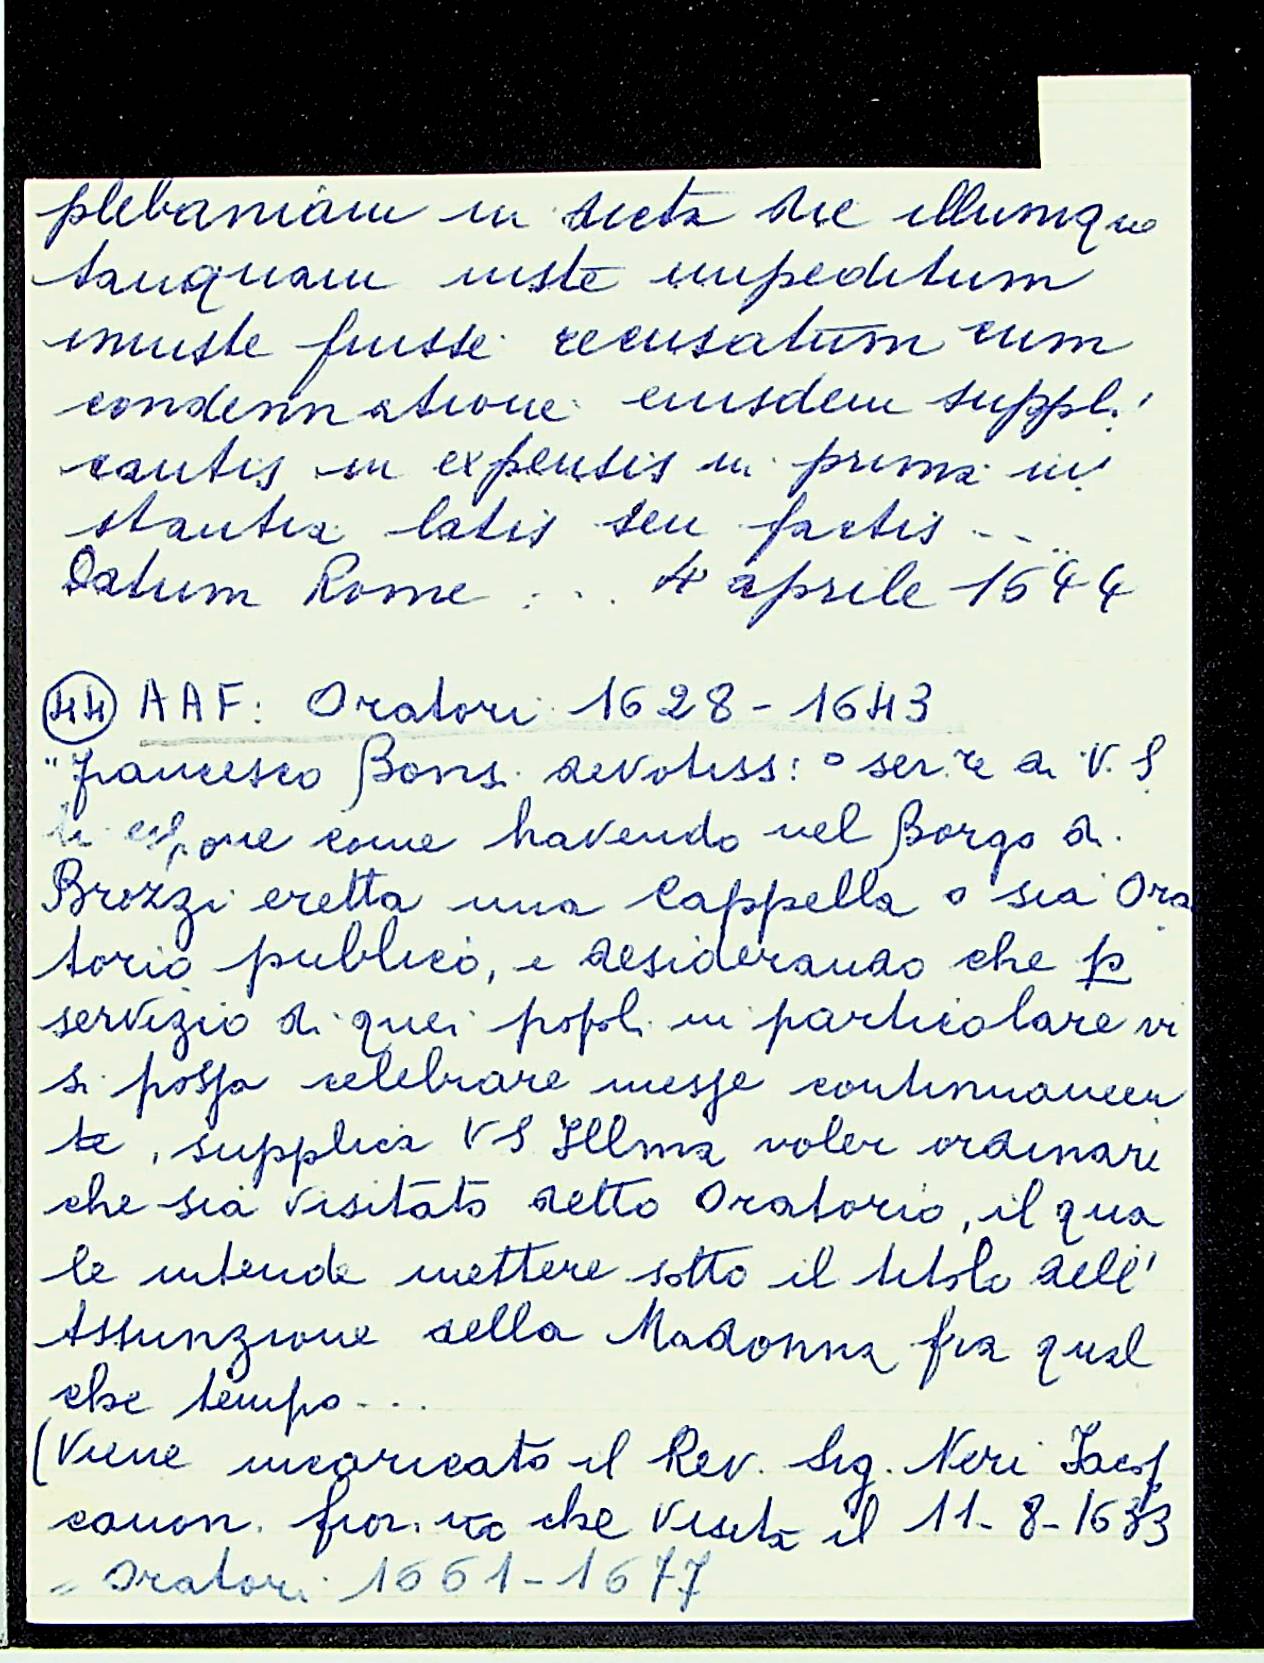 plebaniam in dicta die illumque
tanquam iuste impeditum
iniuste fuisse recusatum cum
condennatione eiusdem suppli
cantis in expensis in prima in
stantia latis seu factis ...
Datum Rome ... 4 aprile 1644
44 AAF: Oratori 1628-1643
"Francesco Bonsi devotiss:o ser.re di V.S
li espone come havendo nel Borgo di
Brozzi eretta una Cappella o sia Ora
torio publico, e desiderando che p
servizio di quei popoli in particolare vi
si possa celebrare messe continuamen
te, supplica VS Illma voler ordinare
che sia visitato detto Oratorio, il qua
le intende mettere sotto il titolo dell'
Assunzione della Madonna fra qual
che tempo...
(Viene incaricato il Rev. Sig. Neri Iacop
canon. fior.no che visita il 11-8-1633
= Oratori 1661-1677